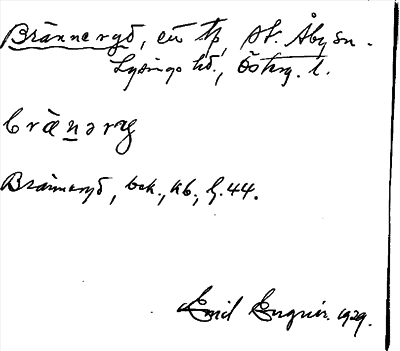 Brännergd, en tp, St. Åby sn.
Lysings hd., Österg. l.
bràn̲ərg
Brännergd, bok., kb., h. 44.
Emil Enqvist. 1929.